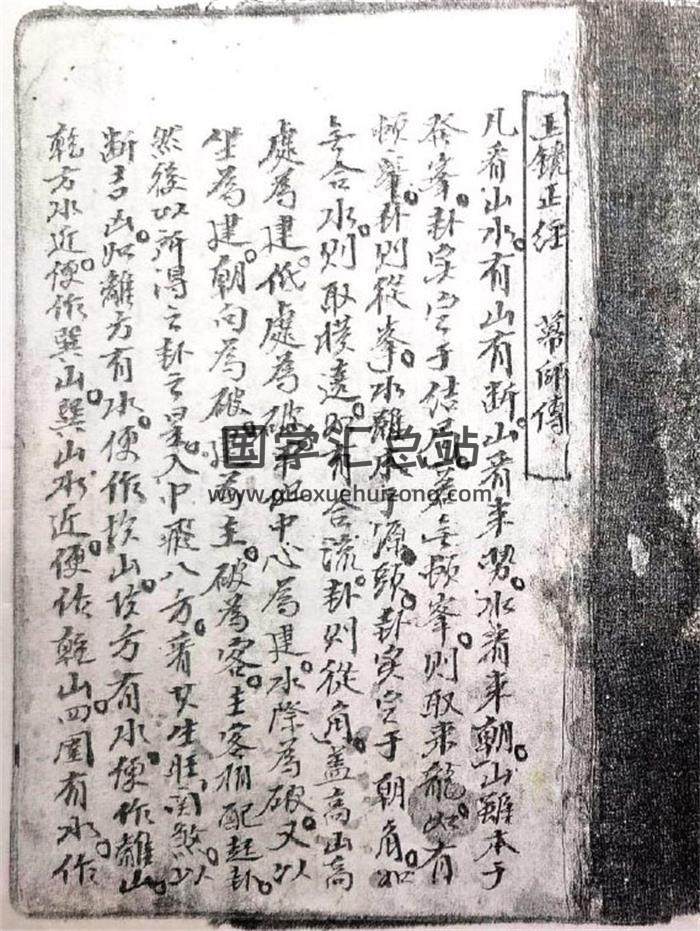 玉镜正经 師傳
凡看山水。有山有断。山看来水看来朝。山雖本于
發峯。卦实定于结若無頓峯。则取来龍。如有
頓峯。卦则從峯。水雖本于源頭。卦实定于朝角。如
無合水。则取横遶。如有合流。卦则從角。盖高山高
處為建。低處為破。中心為建。水際為破。又以
坐為建。朝向為破。建為主。破為客。主客相配起卦。
然後以所得之卦之星。入中飛八方。看其生旺関煞。以
断吉凶。如離方有水。便作坎山。坎方有水。便作離山
乾方水近。便作巽山。巽山水近。便作乾山。四圍有水。作
国学汇总站
www.guoxuehuizong.com